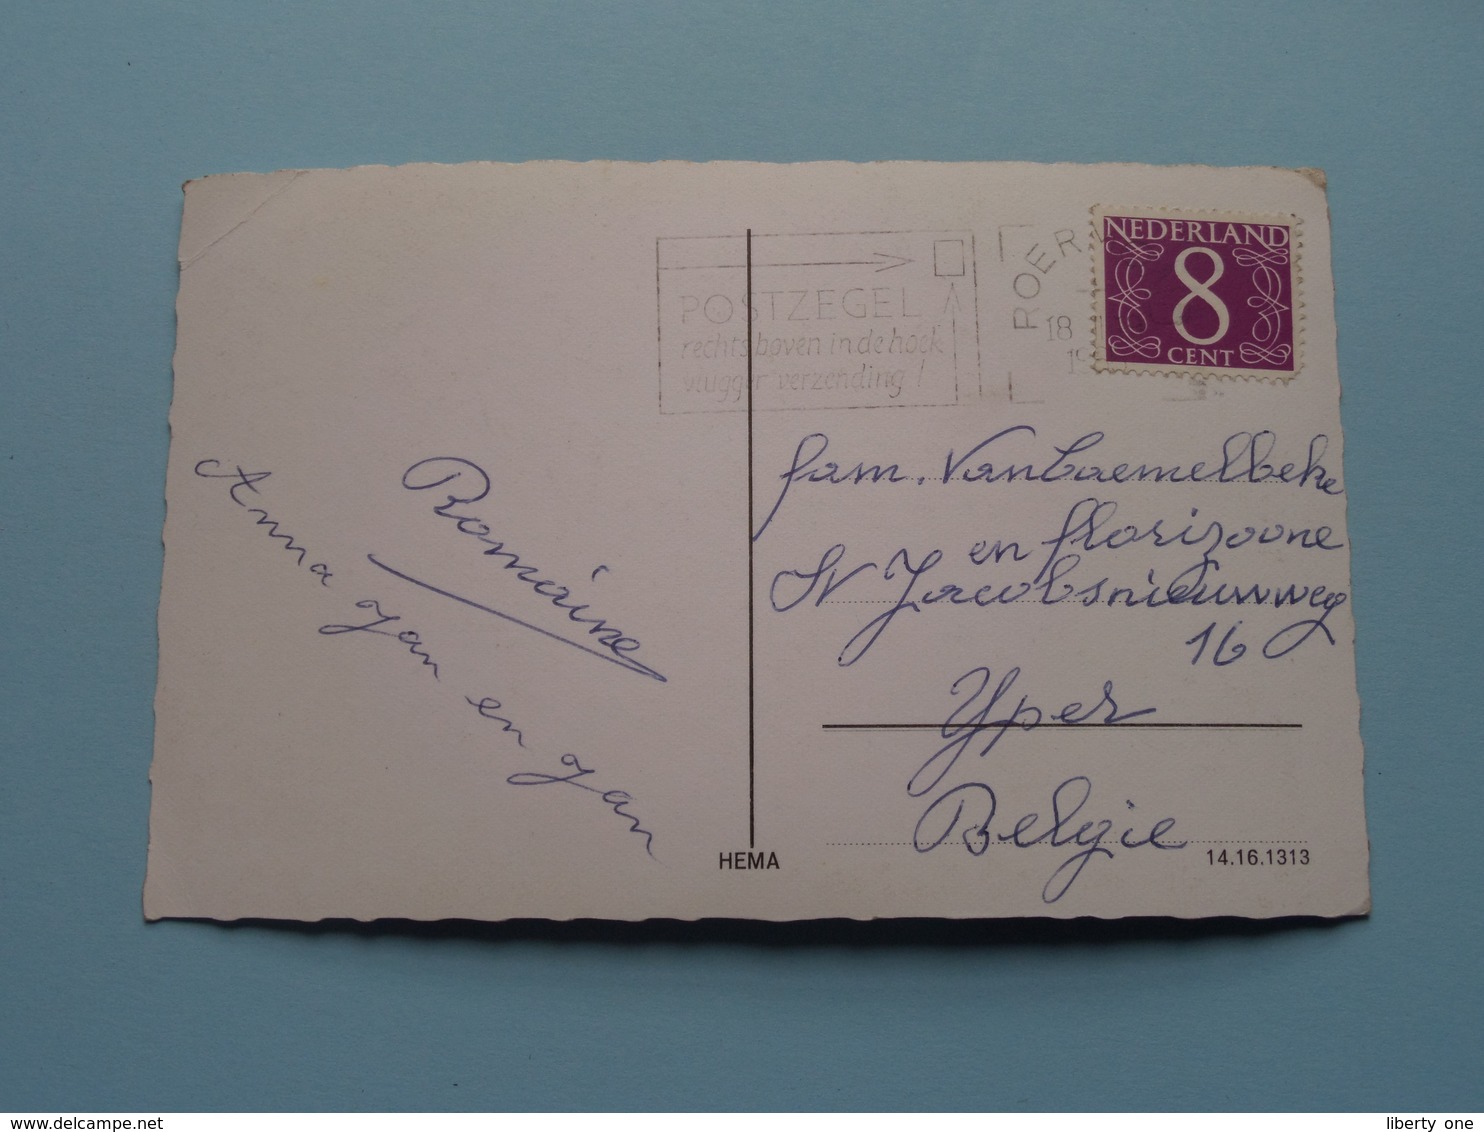 POSTZEGEL
rechts boven in de hoek
vlugger verzending!
ROER
18
NEDERLAND
8
CENT
Romaine
Anna Jan en Jan
fam. Vanbaemelbeke
en florizoone
St Jacobsnieuwweg
16
Yper
België
HEMA
14.16.1313
© delcampe.net
liberty one